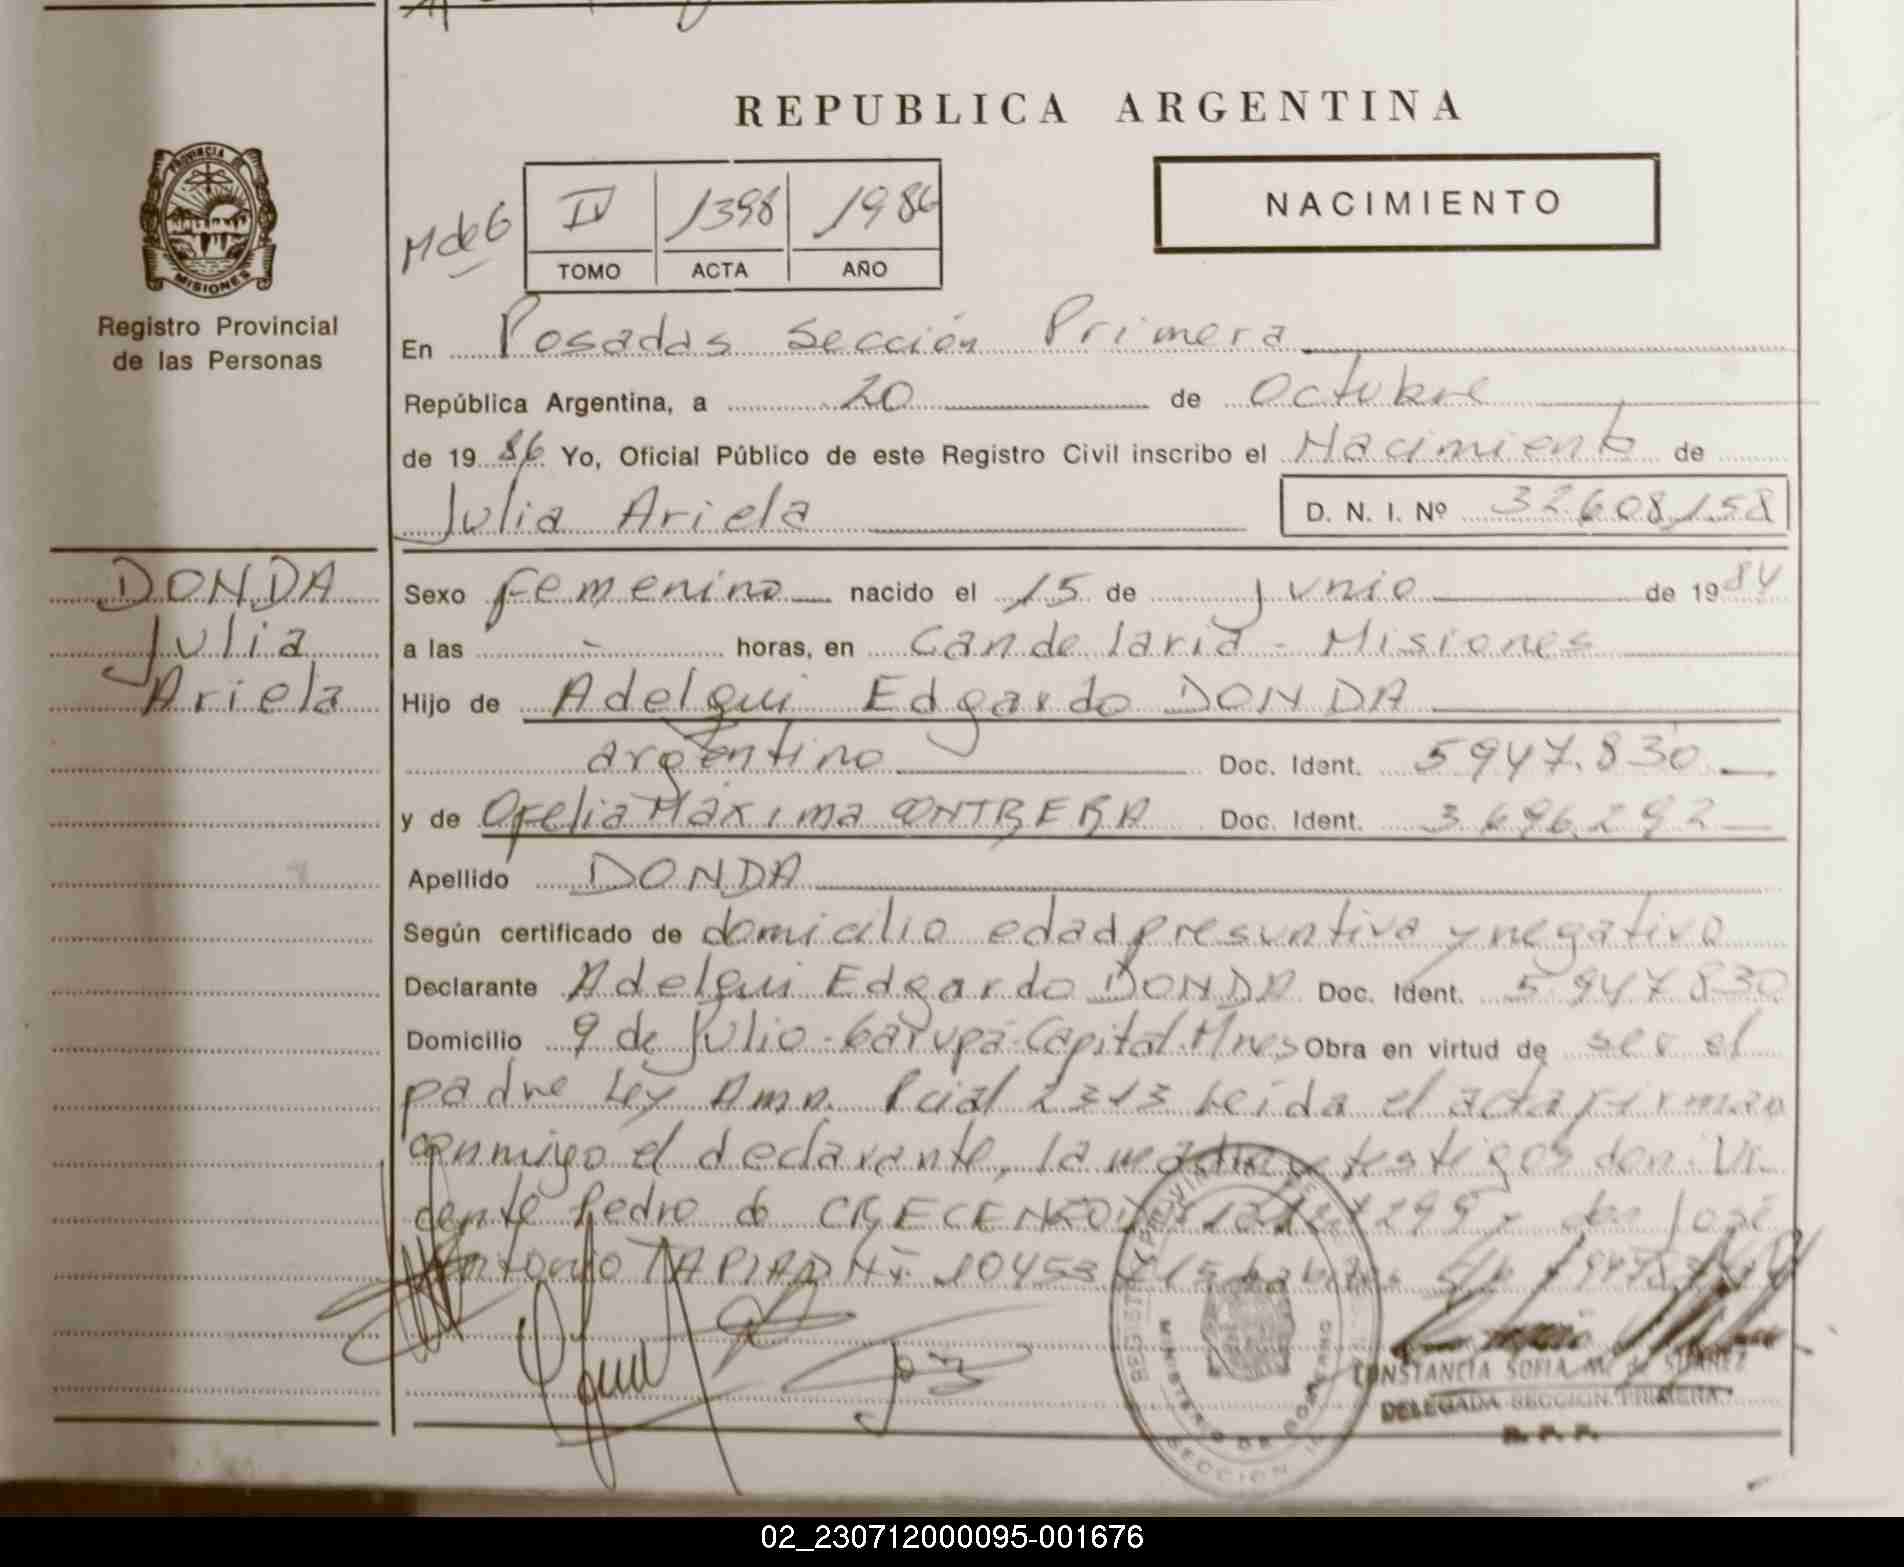 REPUBLICA ARGENTINA
PROVINCIA DE
MISIONES
Registro Provincial
de las Personas
M de G
IV 1398 1986
TOMO ACTA AÑO
NACIMIENTO
En Posadas Sección Primera
República Argentina, a 20 de Octubre
de 1986 Yo, Oficial Público de este Registro Civil inscribo el Nacimiento de
Julia Ariela
D. N. I. Nº 32608158
DONDA
Julia
Ariela
Sexo femenino nacido el 15 de junio de 1984
a las - horas, en Candelaria - Misiones
Hijo de Adelqui Edgardo DONDA
argentino Doc. Ident. 5947.830
y de Ofelia Máxima CONTRERA Doc. Ident. 3.696.292
Apellido DONDA
Según certificado de domicilio edad presuntiva y negativo
Declarante Adelqui Edgardo DONDA Doc. Ident. 5947830
Domicilio 9 de Julio - Garupá - Capital Mnes Obra en virtud de ser el
padre Ley Amn. Pcial 2313 Leída el acta firman
conmigo el declarante, la madre y testigos don Vi
cente Pedro do CRECENCIO don José
Antonio TAPIA DNI 10453
REGISTRO PROVINCIAL DE
MINISTERIO DE GOBIERNO
SECCION
CONSTANCIA SOFIA M. de SUAREZ
DELEGADA SECCION PRIMERA
R. P. P.
02_230712000095-001676